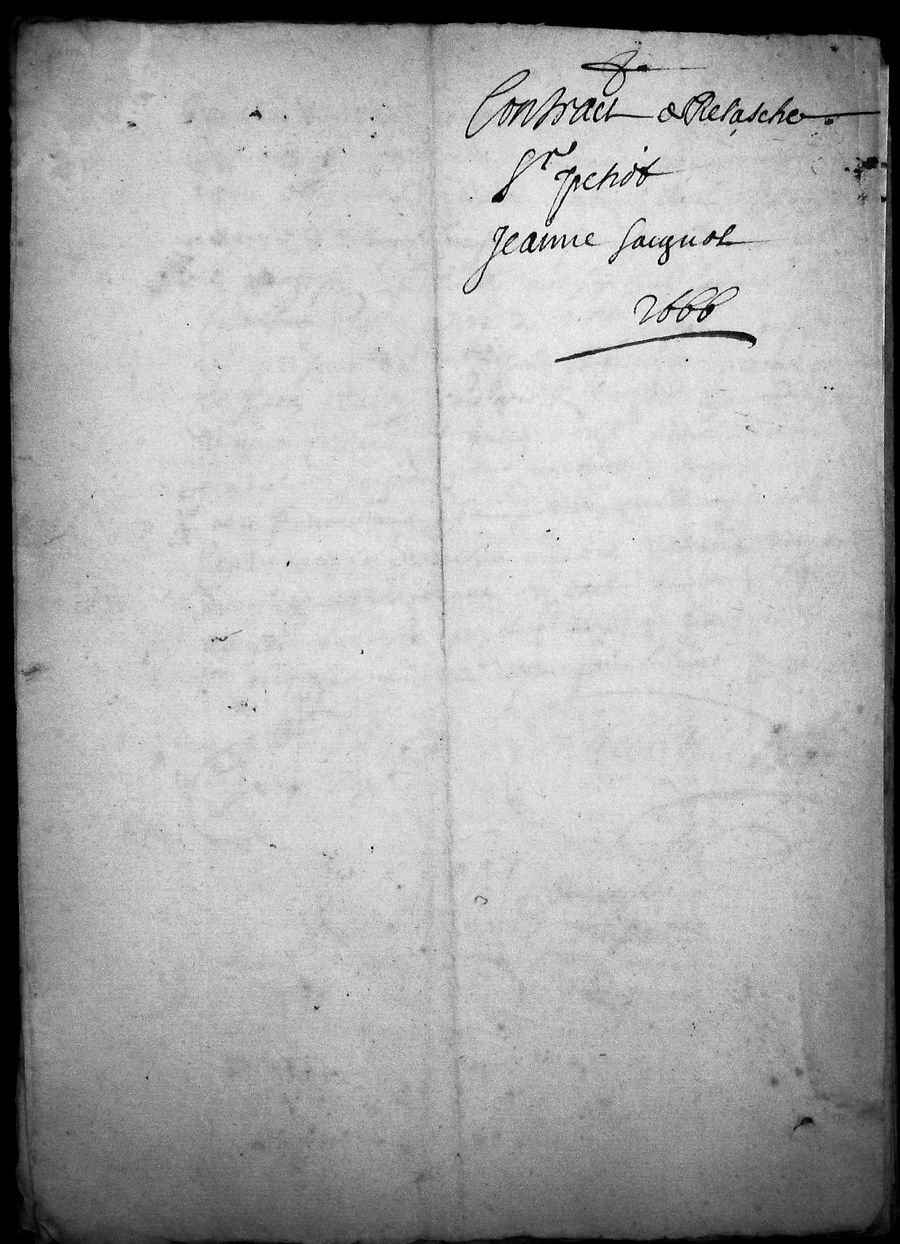 Contract & Relasche
Sr petiot
Jeanne Sacguot
1666